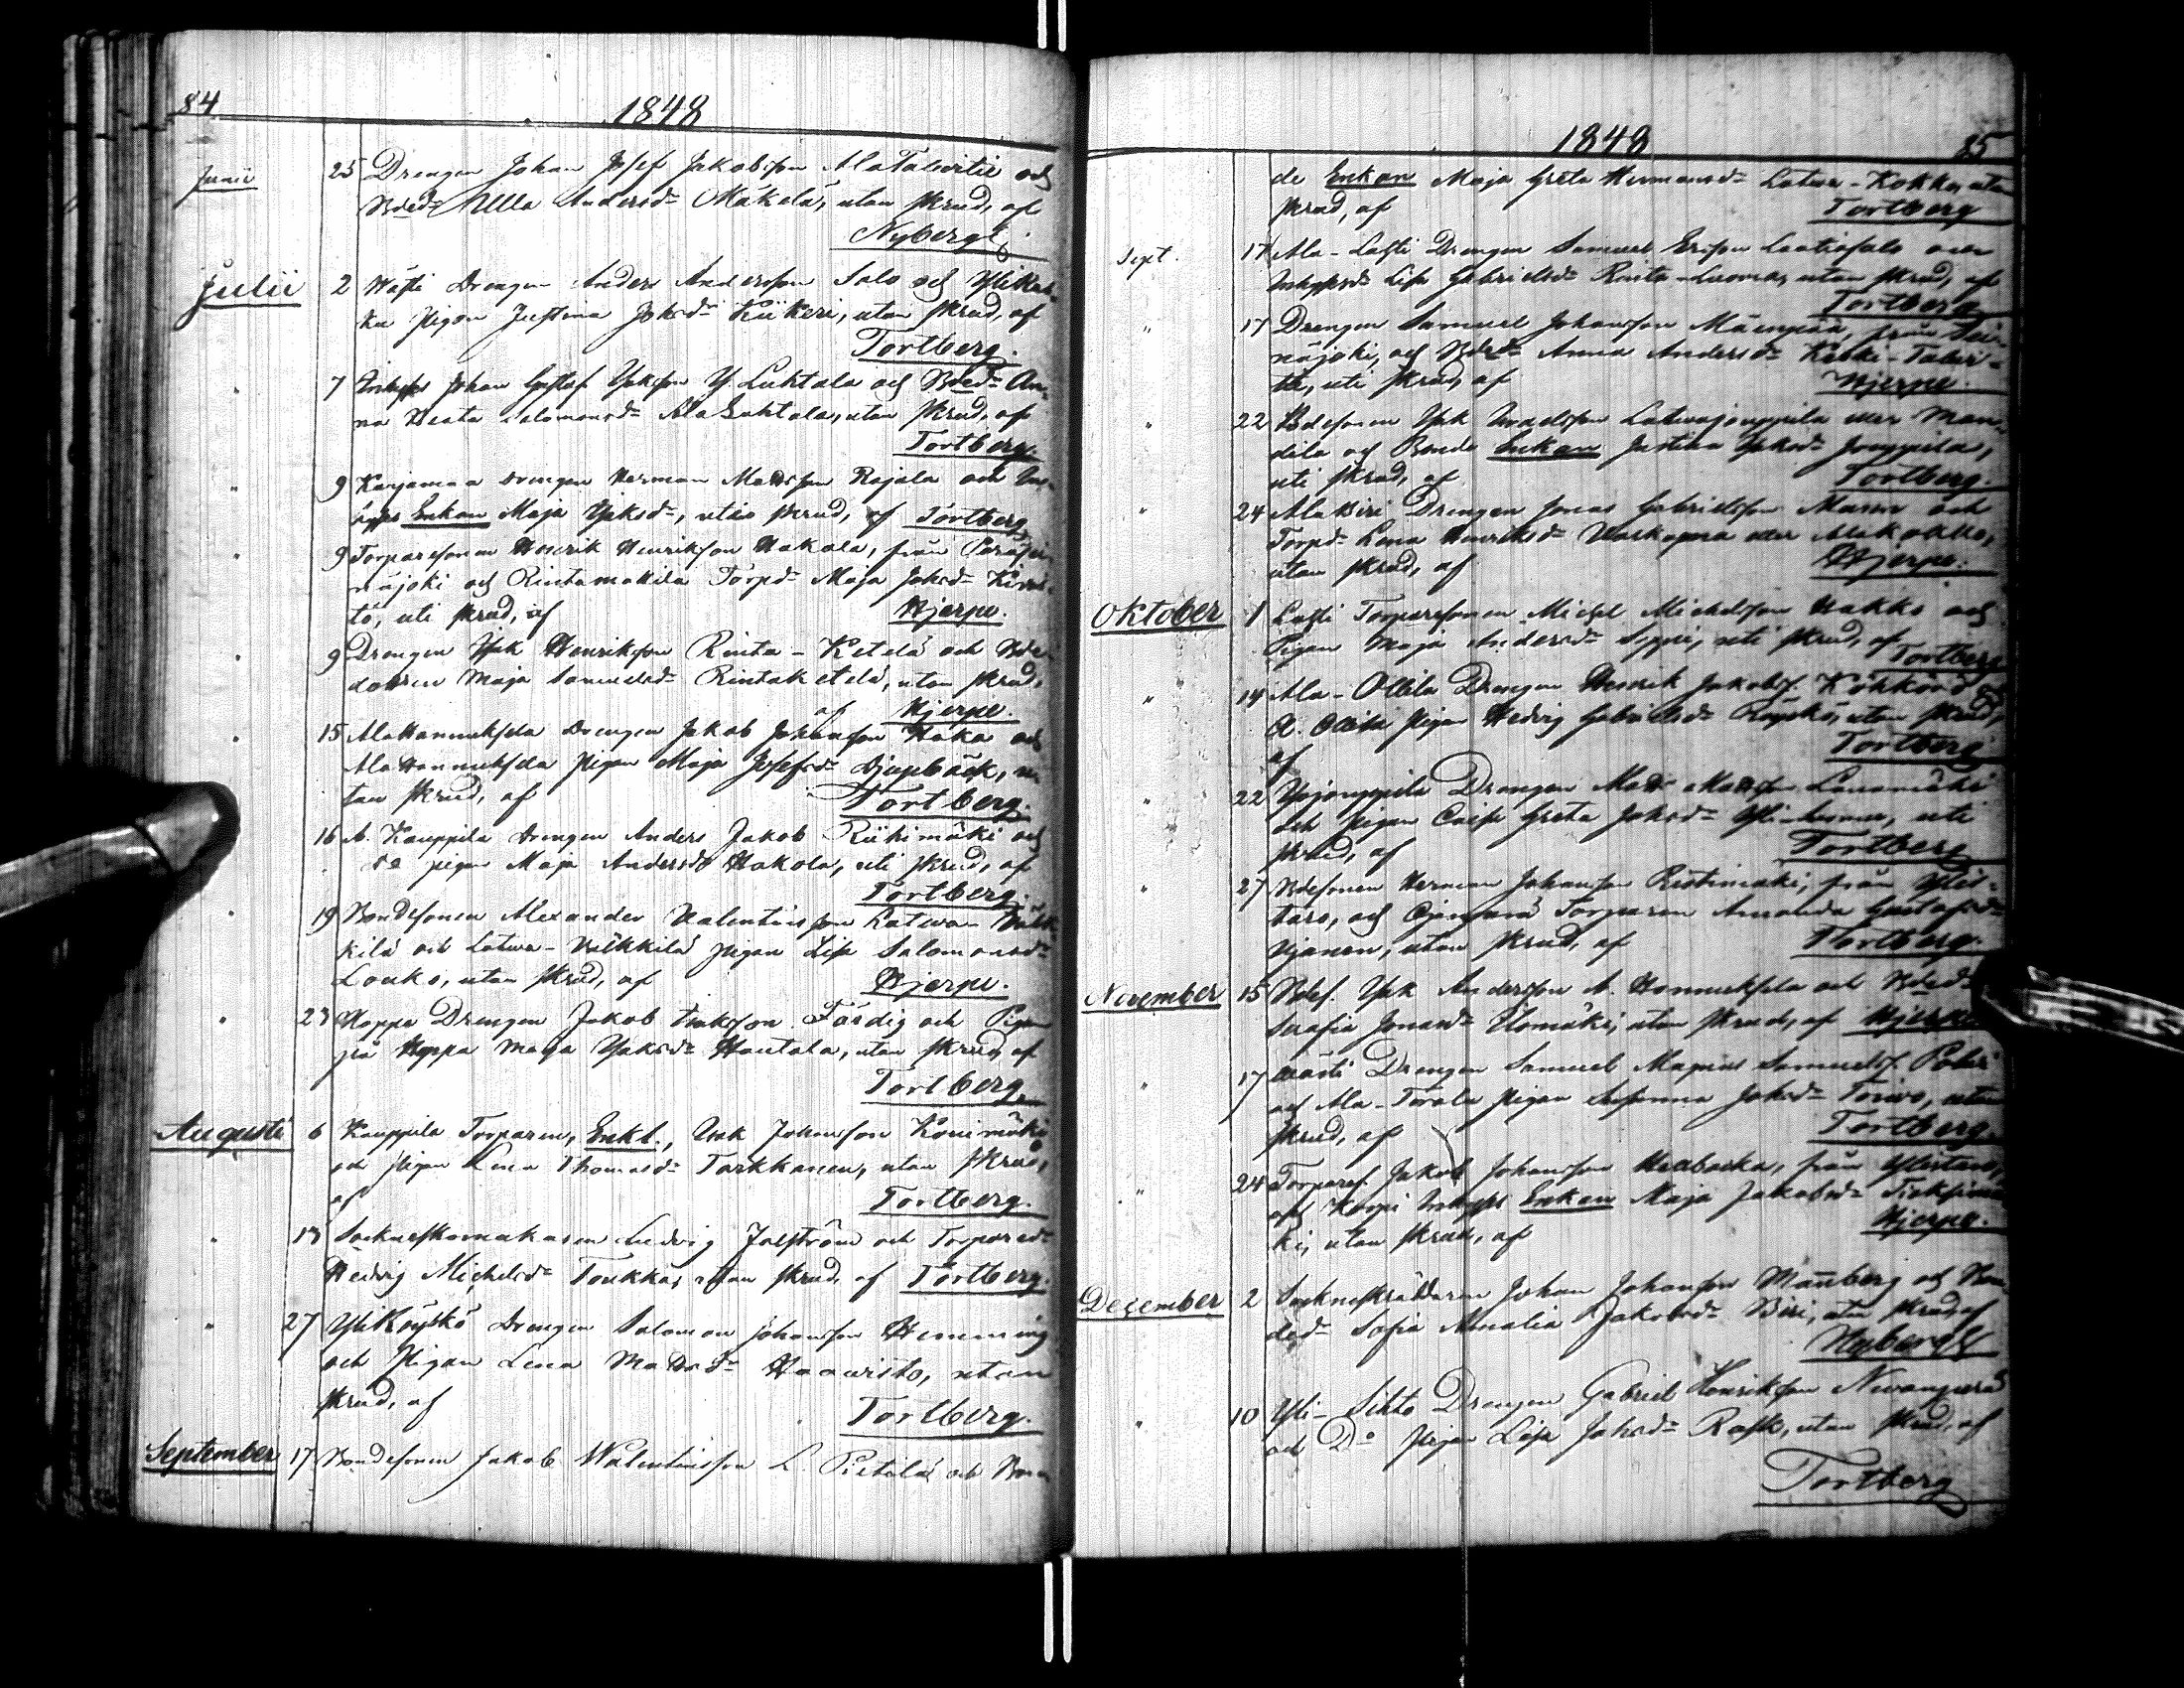 84
1848
Junii 25 Drengen Johan Josef Jakobsson AlaTalvitie och
Bdedr Ulla Andersdr Mäkelä, utan skrud, af
Nyberg
Julii 2 Wästi Drengen Anders Andersson Salo och
Pigan Justina Johsdr Kükeri, utan skrud, af
Tortberg.
" 7 Inhyss Johan Gustaf Isaksson Y. Luhtala och Bdedr An-
na Beata Salomonsdr AlaLuhtala, utan skrud, af
Tortberg.
" 9 Karjamaa drengen Herman Mattsson Rajala och In-
hyss Enkan Maja Isaksdr, utan skrud, af Tortberg
" 9 Torparesonen Henrik Henriksson Hakala, från Peräsei-
näjoki och Rintamäkilä Torpdr Maja Johsdr Kivis-
tö, uti skrud, af Hjerpe.
" 9 Drengen Isak Henriksson Rinta-Ketelä och Bde-
dottren Maja Samuelsdr Rintaketelä, utan skrud,
af Hjerpe.
" 15 AlaHannuksela Drengen Jakob Johansson Haka och
AlaHannuksela Pigan Maja Josefsdr Djupbäck, u-
tan skrud, af Tortberg.
16 A. Kauppila Drengen Anders Jakob Riihimäki och
Do pigan Maja Andersdr Hakola, uti skrud, af
Tortberg.
" 19 Bondesonen Alexander Valentinsson Latva-
kilä och Latva- pigan Lisa Salomonsdr
Louko, utan skrud, af Hjerpe.
" 23 Hoppa Drengen Jakob Isaksson Färdig och Pigan
på Hoppa Maja Isaksdr Hautala, utan skrud, af
Tortberg
Augusti 6 Kauppila Torparen, Enkl., Isak Johansson Konimäki
och Pigan Lena Thomasdr Tarkkanen, utan skrud,
af Tortberg.
" 13 Sockneskomakaren Ludvig Forström och Torparedr
Hedvig Michelsdr Toukka, utan skrud, af Tortberg.
" 27 YliRöyskö Drengen Salomon Johansson Hemming
och Pigan Lena Mattsdr Haavisto, utan
skrud, af Tortberg.
September 17 Bondesonen Jakob Valentinsson L. Pietilä och Bon-
1848
85
de Enkan Maja Greta Hermansdr Latva-Kokko, utan
skrud, af Tortberg
Sept. 17 Ala-Lassi Drengen Samuel Ericsson Luotiosalo och
Inhyssdr Lisa Gabrielsdr Rinta-Luoma, utan skrud, af
Tortberg
" 17 Drengen Samuel Johansson Mäenpää, från Sei-
näjoki, och Bdedr Anna Andersdr Keski-Talvi-
tie, uti skrud, af Hjerpe.
" 22 Bdesonen Isak Isaksson Latvajouppila eller Man-
dila och Bonde Enkan Justina Isaksdr Jouppila,
uti skrud, af Tortberg.
" 24 AlaBiri Drengen Jonas Gabrielsson och
Torpdr Lena Henriksdr eller AlaKokko,
utan skrud, af Hjerpe.
Oktober 1 Lassi Torparesonen Michel Michelsson Hakko och
Pigan Maja Andersdr Seppi, uti skrud, af
Tortberg
" 14 Ala-Ollila Drengen Henrik Jakobss. Köhkörö och
A. Ollila Pigan Hedvig Gabrielsdr Röyskö, utan skrud,
af Tortberg
" 22 Drengen Matts Mattsson Lanamäki
och Pigan Caisa Greta Johsdr Yli-, uti
skrud, af Tortberg
" 27 Bdesonen Herman Johansson Ristimäki, från Ylis-
taro, och Torparen Amanda Gustafsdr
, utan skrud, af Tortberg.
November 15 Bdes. Isak Andersson A. Hannuksela och Bdedr
Serafia Jonasdr Ulomäki, utan skrud, af Hjerpe
" 17 Wästi Drengen Samuel Magnus Samuelss. Pohri
och Ala-Torala Pigan Susanna Johsdr Toivo, utan
skrud, af Tortberg.
" 24 Torpares. Jakob Johansson, från Ylistaro,
och Karpi Inhyss Enkan Maja Jakobsdr
ki, utan skrud, af Hjerpe.
Dezember 2 Sockneskräddaren Johan Johansson Manberg och Bon-
dedr Sofia Amalia Jakobsdr Biri, utan skrud, af
Nyberg
" 10 Yli-Sihto Drengen Gabriel Henriksson Nevanperä
och Do Pigan Lisa Johsdr Rask, utan skrud, af
Tortberg